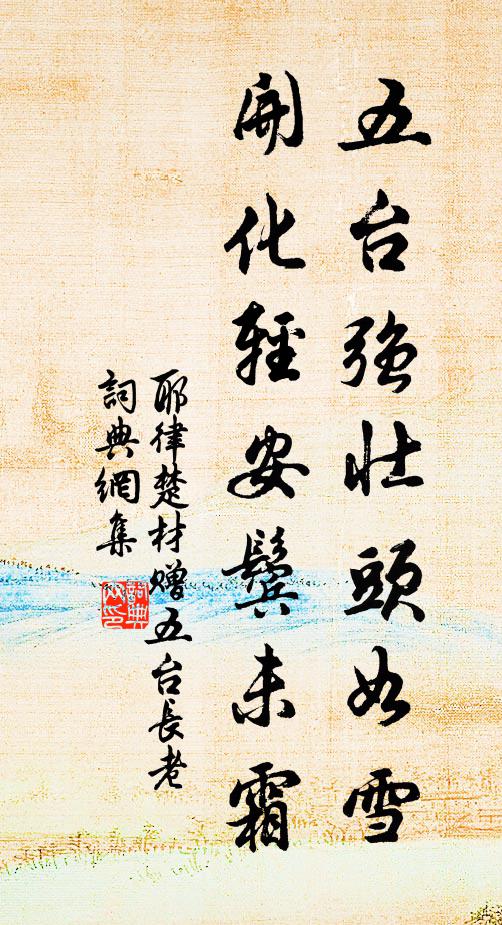 五台强壮頭如雪
開化輕安鬢未霜
耶律楚材赠五台長老
詞典網集
詞典